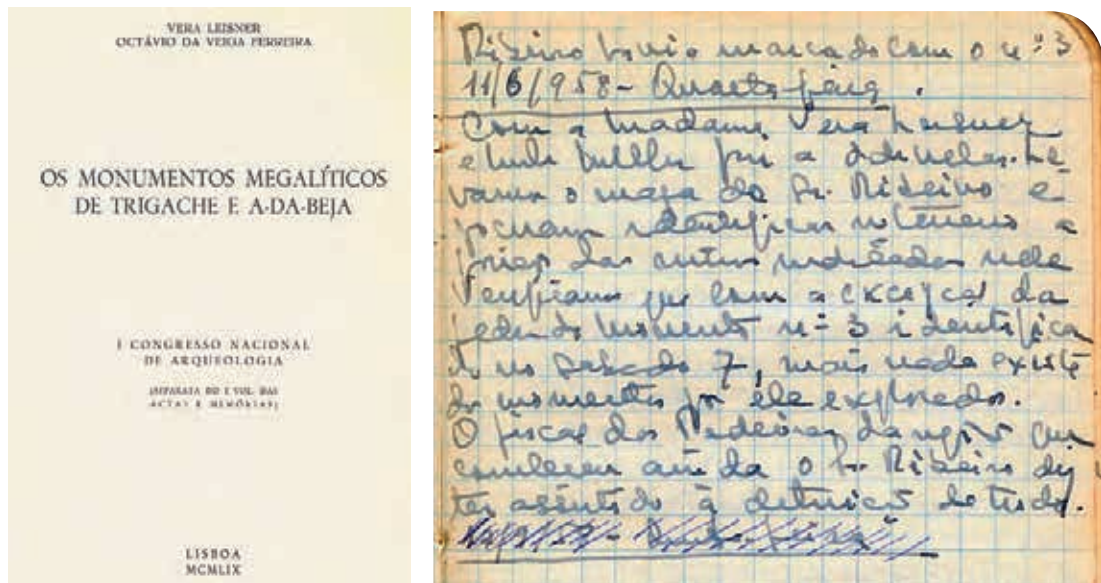 VERA LEISNER
OCTÁVIO DA VEIGA FERREIRA
OS MONUMENTOS MEGALÍTICOS
DE TRIGACHE E A-DA-BEJA
I CONGRESSO NACIONAL
DE ARQUEOLOGIA
(SEPARATA DO I VOL. DAS
ACTAS E MEMÓRIAS)
LISBOA
MCMLIX
Ribeiro havia marcado com o nº 3
11/6/958 - Quarta-feira.
Com a madame Vera Leisner
e fui a Odivelas. Le
vamos o mapa do Sr. Ribeiro e
identificar no terreno a
das antas indicadas nele
Verificamos que com a excepção da
pedra do monumento nº 3 identifica
do no Sabado 7, mais nada existe
dos monumentos por ele explorados.
O fiscal das Pedreiras da região que
conheceu ainda o Sr. Ribeiro diz
ter assistido à destruição de tudo.